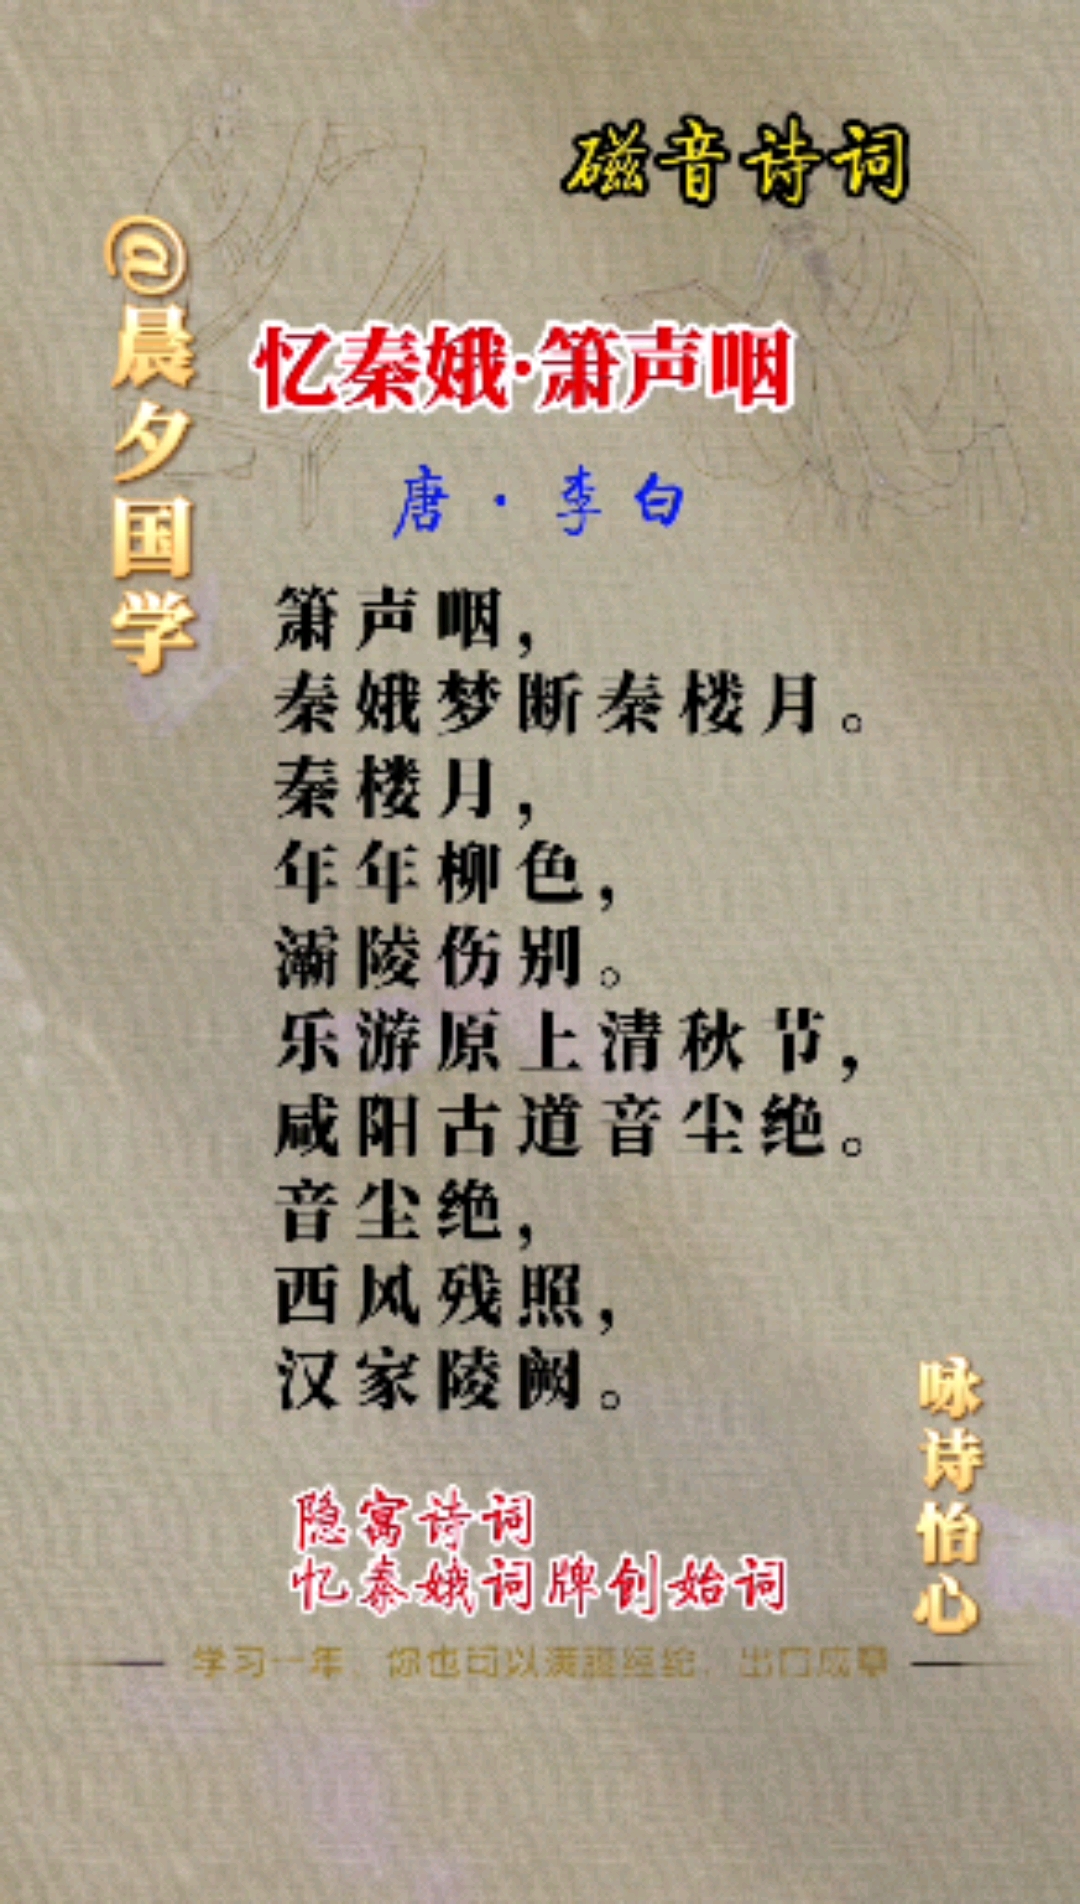 磁音诗词
@晨夕国学
忆秦娥·箫声咽
唐·李白
箫声咽，
秦娥梦断秦楼月。
秦楼月，
年年柳色，
灞陵伤别。
乐游原上清秋节，
咸阳古道音尘绝。
音尘绝，
西风残照，
汉家陵阙。
咏诗怡心
隐寓诗词
忆秦娥词牌创始词
学习一年，你也可以满腹经纶，出口成章